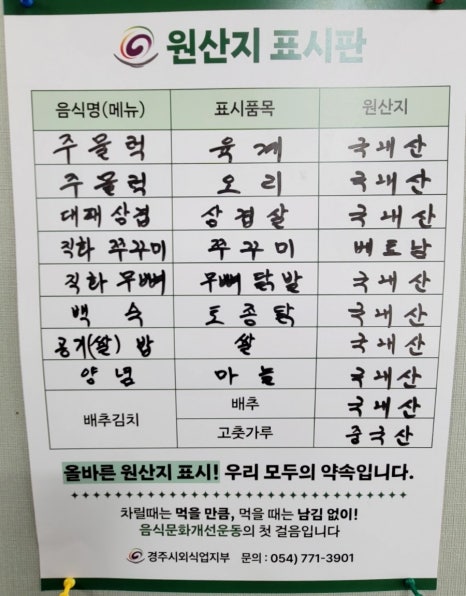 원산지 표시판
음식명(메뉴) 표시품목 원산지
주물럭 육계 국내산
주물럭 오리 국내산
대패삼겹 삼겹살 국내산
직화 쭈꾸미 쭈꾸미 베트남
직화 무뼈 무뼈닭발 국내산
백숙 토종닭 국내산
공기(쌀)밥 쌀 국내산
양념 마늘 국내산
배추김치 배추 국내산
고춧가루 중국산
올바른 원산지 표시! 우리 모두의 약속입니다.
차릴때는 먹을 만큼, 먹을 때는 남김 없이!
음식문화개선운동의 첫 걸음입니다
경주시외식업지부 문의 : 054) 771-3901